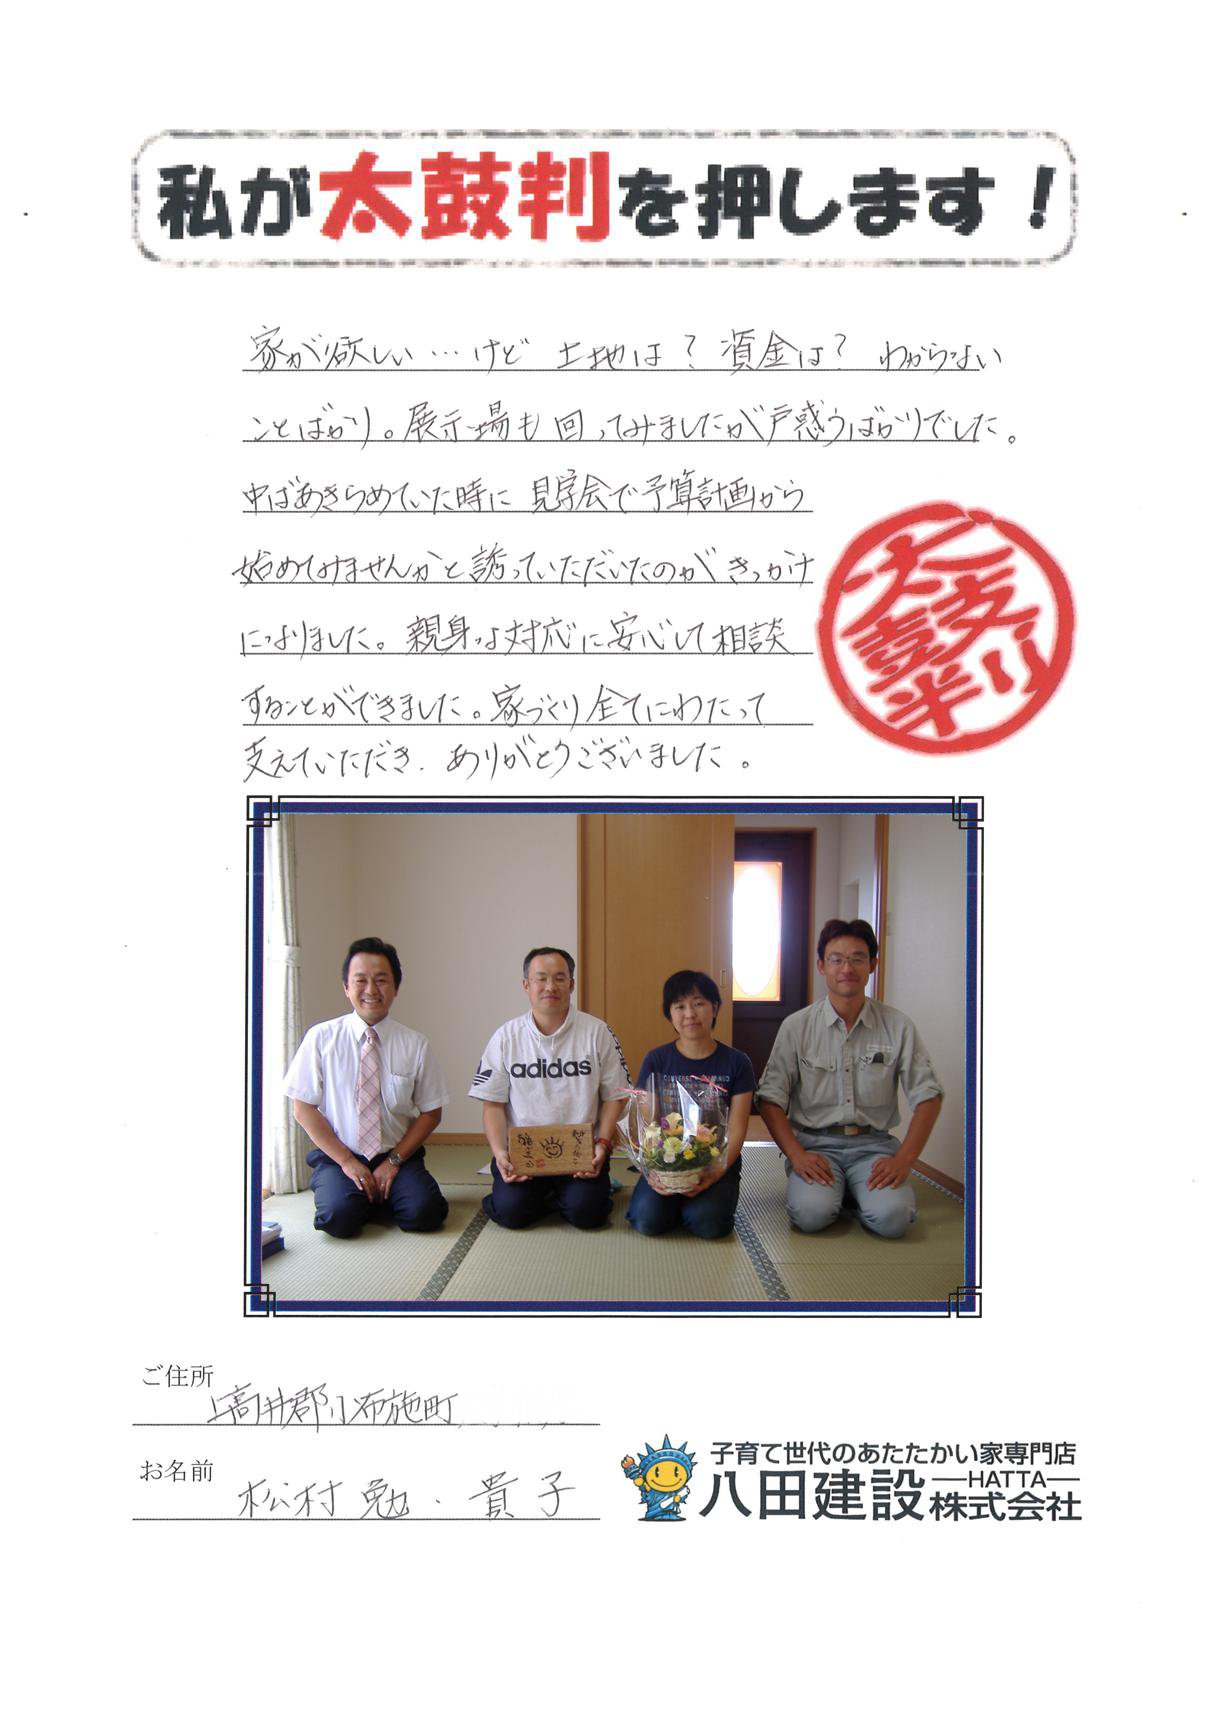 私が太鼓判を押します！
家が欲しい…けど 土地は？資金は？ わからない
ことばかり。展示場も回ってみましたが戸惑うばかりでした。
中ばあきらめていた時に 見学会で予算計画から
始めてみませんかと誘っていただいたのがきっかけ
になりました。親身な対応に安心して相談
することができました。家づくり全てにわたって
支えていただき、ありがとうございました。
太鼓判
adidas
CONVERSE
ご住所
上高井郡小布施町
お名前
松村 勉・貴子
子育て世代のあたたかい家専門店
八田建設
HATTA
株式会社